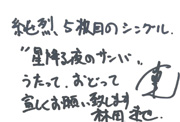 純烈 5枚目のシングル.
“星降る夜のサンバ”
うたって、おどって
宜しくお願い致します
林田達也